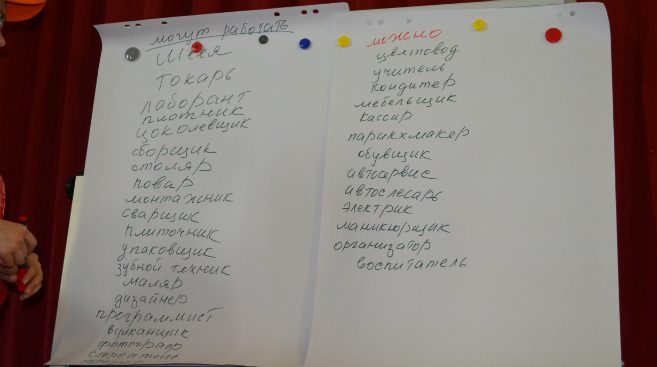 могут работать
Швея
токарь
лаборант
плотник
цоколевщик
сборщик
столяр
повар
монтажник
сварщик
плиточник
упаковщик
зубной техник
маляр
дизайнер
программист
вулканщик
фотограф
можно
цветовод
учитель
кондитер
мебельщик
кассир
парикхмакер
обувщик
автосервис
автослесарь
электрик
маникюрщик
организатор
воспитатель